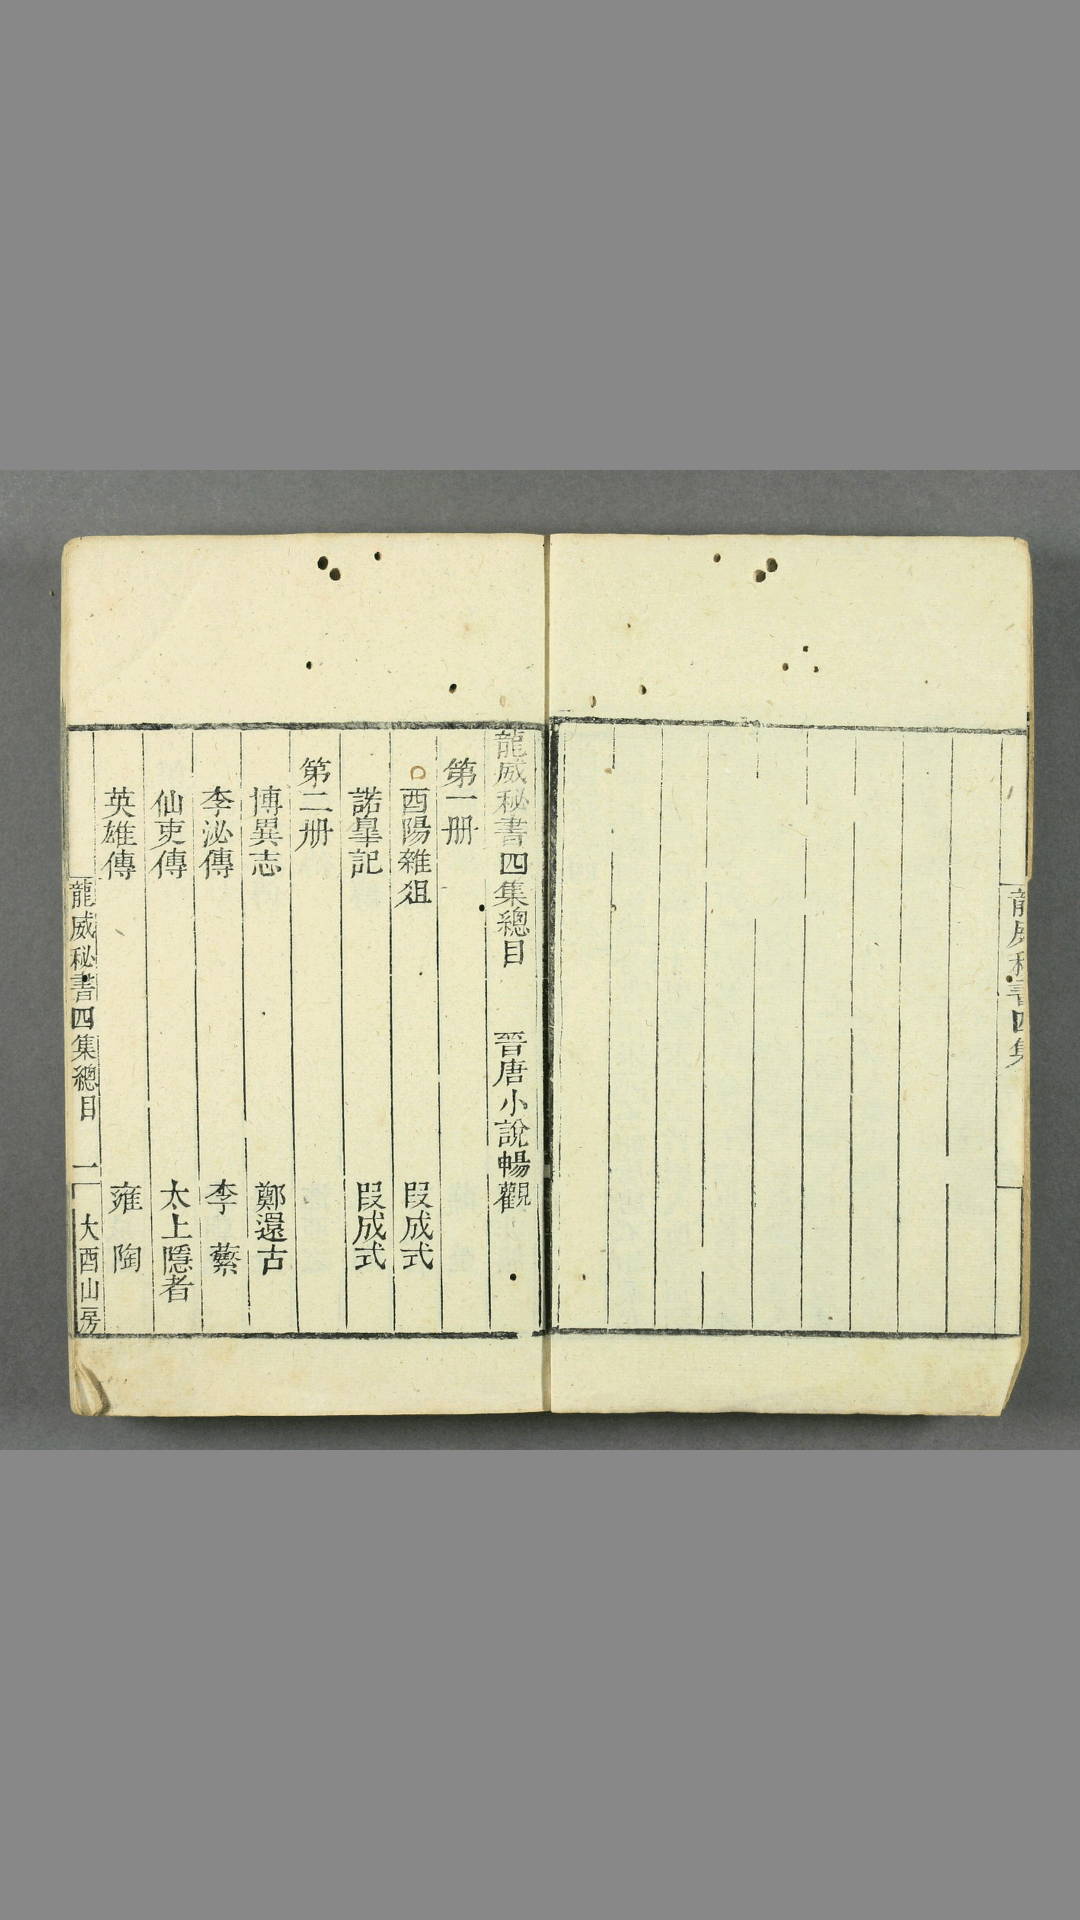 龍威秘書四集
龍威秘書四集總目 晉唐小說暢觀
第一册
酉陽雜俎 段成式
諾皋記 段成式
第二册
博異志 鄭還古
李泌傳 李蘩
仙吏傳 太上隱者
英雄傳 雍陶
龍威秘書四集總目 一 大酉山房